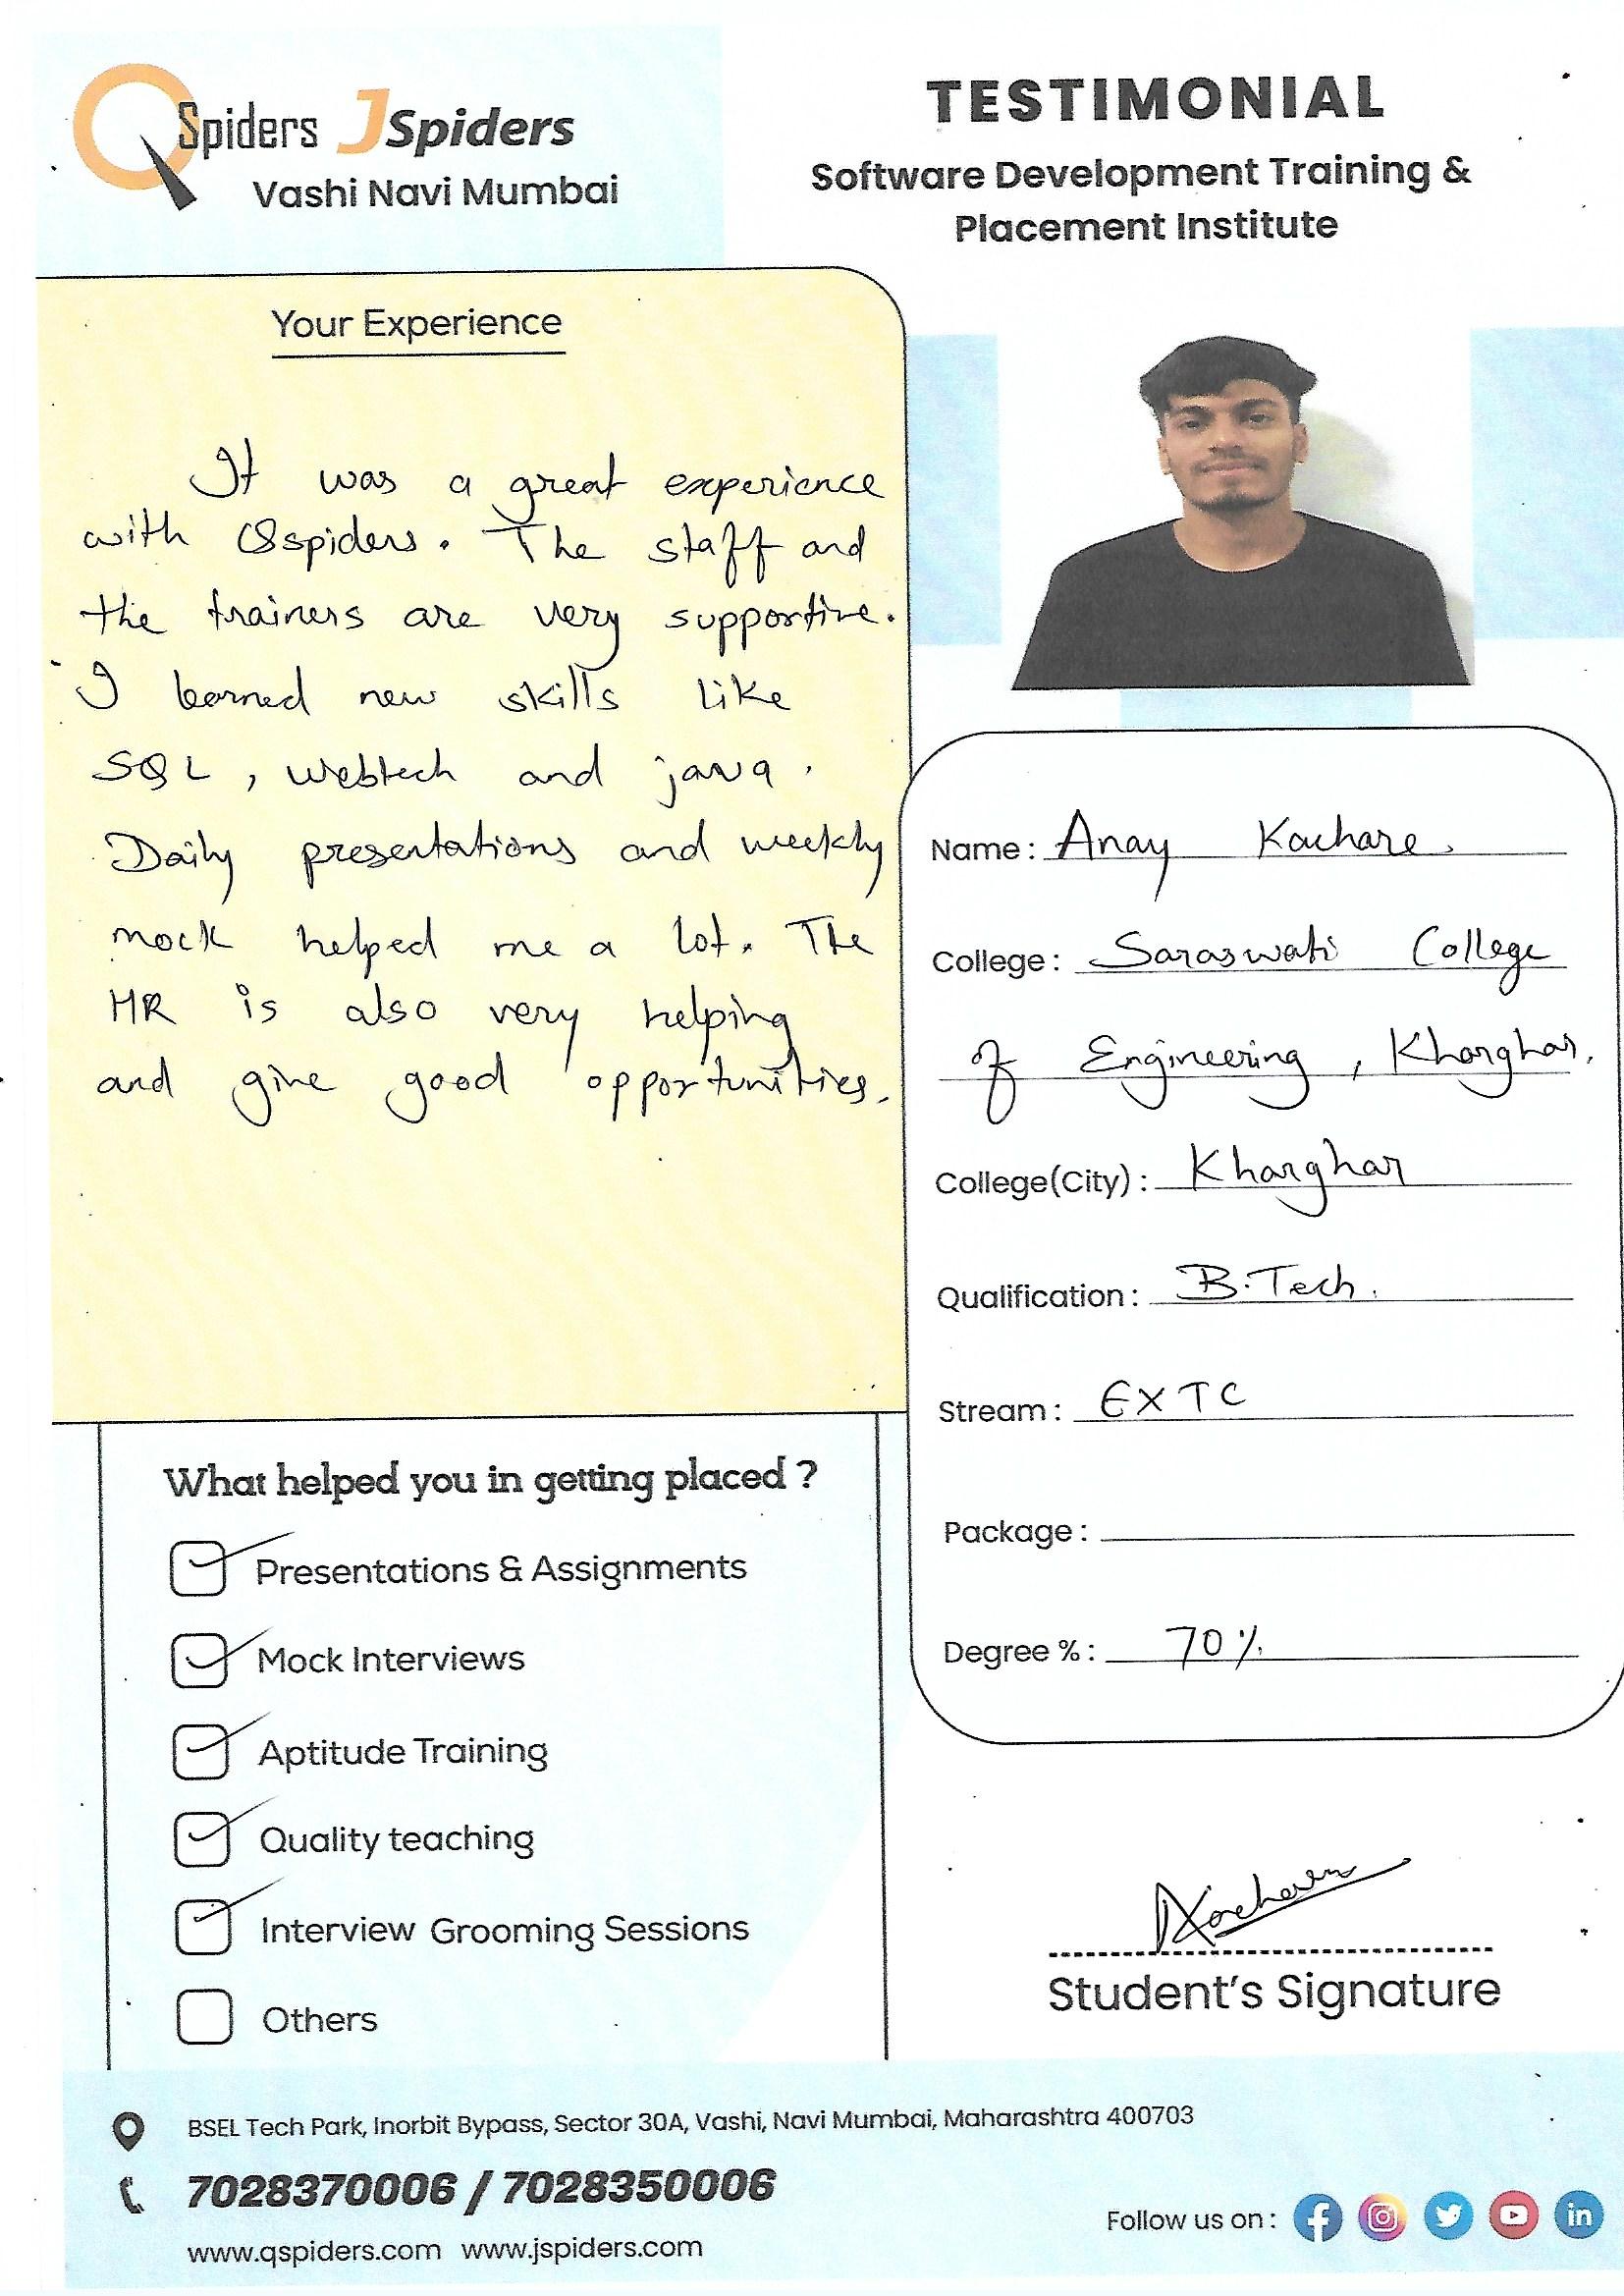 QSpiders JSpiders
Vashi Navi Mumbai
TESTIMONIAL
Software Development Training &
Placement Institute
Your Experience
It was a great experience
with Qspiders. The staff and
the trainers are very supportive.
I learned new skills like
SQL, Webtech and java.
Daily presentations and weekly
mock helped me a lot. The
HR is also very helping
and give good opportunities.
Name: Anay Kachare.
College: Saraswati College
of Engineering, Kharghar.
College(City): Kharghar
Qualification: B.Tech.
Stream: EXTC
Package:
Degree %: 70%
What helped you in getting placed ?
Presentations & Assignments
Mock Interviews
Aptitude Training
Quality teaching
Interview Grooming Sessions
Others
AKachare
Student's Signature
BSEL Tech Park, Inorbit Bypass, Sector 30A, Vashi, Navi Mumbai, Maharashtra 400703
7028370006 / 7028350006
www.qspiders.com www.jspiders.com
Follow us on :